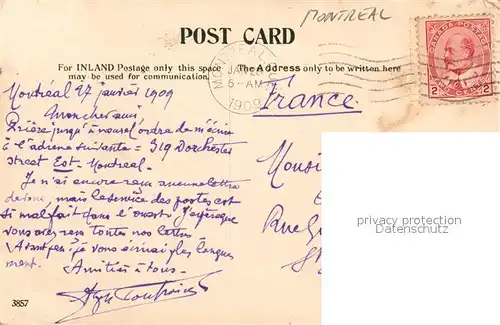 MONTREAL
POST CARD
For INLAND Postage only this space
may be used for communication.
The Address only to be written here
MONTREAL
JAN 28
5-AM
1909
CANADA POSTAGE
2 2
France
Montréal 27 janvier 1909
Mon cher ami
Prière jusqu'à nouvel ordre de m'écrire
à l'adresse suivante = 319 Dorchester
street Est - Montreal.
Je n'ai encore reçu aucune lettre
de vous, mais le service des postes est
si mal fait dans l'ouest. J'espère que
vous avez reçu toutes nos lettres
A tantôt je vous écrirai plus longue
ment.
Amitiés à tous -
Monsi
Rue
3857
privacy protection
Datenschutz